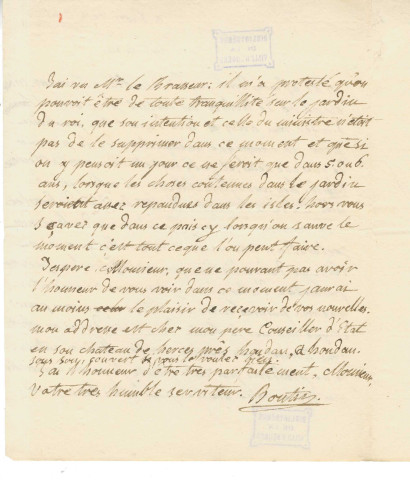 J'ai vu Mr. le Brasseur; il m'a protesté qu'on
pouvoit être de toute tranquillité sur le jardin
du roi, que son intention et celle du ministre n'était
pas de le supprimer dans ce moment et que si
on y pensoit un jour ce ne seroit que dans 5. ou 6
ans, lorsque les choses contenues dans le jardin
seroient assez repandues dans les isles. hors vous
sçavez que dans ce païs cy lorsqu'on sauve le
moment c'est tout ce que l'on peut faire.
J'espere, Monsieur, que ne pouvant pas avoir
l'honneur de vous voir dans ce moment j'aurai
au moins le plaisir de recevoir de vos nouvelles.
mon addresse est chez mon pere Conseiller d'Etat
en son chateau de herces près houdan, a houdan.
sous son couvert si vous le voulez
J'ai l'honneur d'être très parfaitement, Monsieur,
Votre très humble serviteur. Boutin